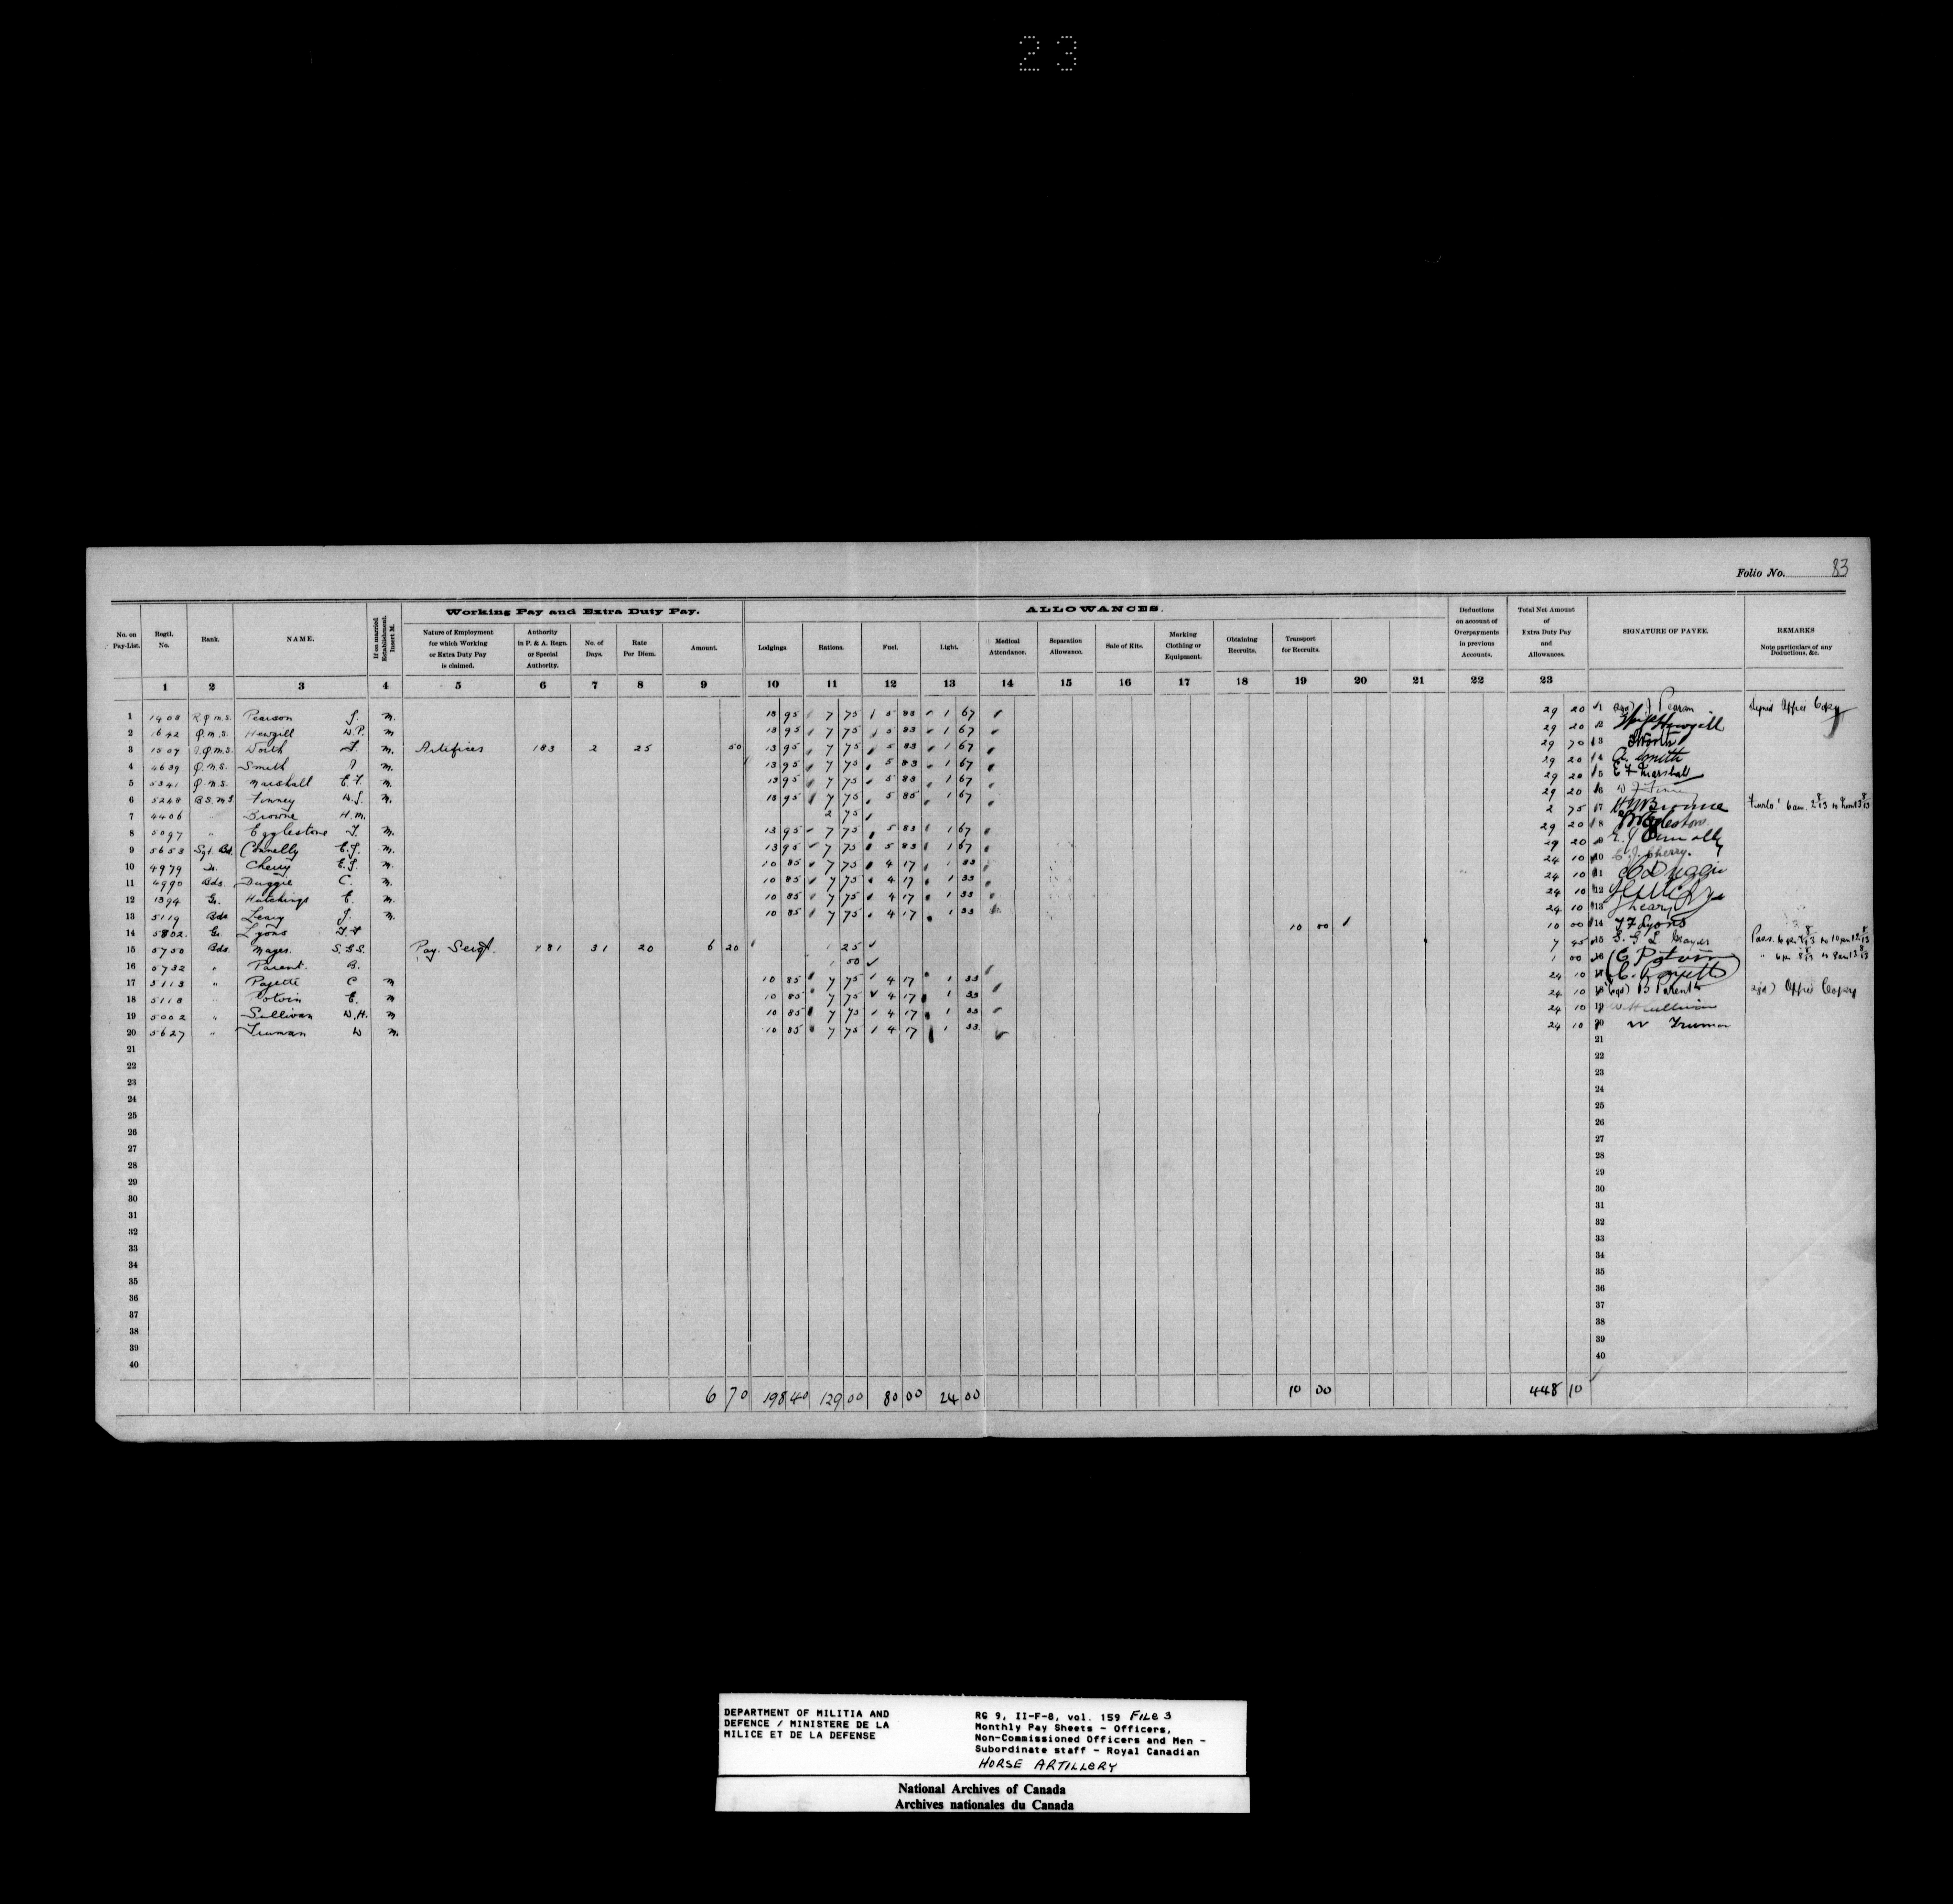 23
Folio No. 83
Working Pay and Extra Duty Pay. ALLOWANCES.
No. on Pay-List. Regtl. No. Rank. NAME. If on married Establishment. Insert M. Nature of Employment for which Working or Extra Duty Pay is claimed. Authority in P. & A. Regn. or Special Authority. No. of Days. Rate Per Diem. Amount. Lodgings. Rations. Fuel. Light. Medical Attendance. Separation Allowance. Sale of Kits. Marking Clothing or Equipment. Obtaining Recruits. Transport for Recruits. Deductions on account of Overpayments in previous Accounts. Total Net Amount of Extra Duty Pay and Allowances. SIGNATURE OF PAYEE. REMARKS Note particulars of any Deductions, &c.
1 2 3 4 5 6 7 8 9 10 11 12 13 14 15 16 17 18 19 20 21 22 23
1 1408 R.Q.M.S. Pearson J. m. 13 95 7 75 5 83 1 67 29 20 1 (sgd) J Pearson signed Office Copy
2 1642 Q.M.S. Hewgill W.P. m 13 95 7 75 5 83 1 67 29 20 2 W.P. Hewgill
3 1507 Q.M.S. Worth m. Artificer 183 2 25 50 13 95 7 75 5 83 1 67 29 70 3 Worth
4 4639 Q.M.S. Smith m. 13 95 7 75 5 83 1 67 29 20 4 A. Smith
5 5341 Q.M.S. Marshall E.F. m. 13 95 7 75 5 83 1 67 29 20 5 E F Marshall
6 5248 B.S.M.S Finney W.J. m. 13 95 7 75 5 85 1 67 29 20 6 W J Finney
7 4406 " Browne H.M. 2 75 2 75 7 H M Browne Furlo. 6 am 2/8/13
8 5097 " Egglestone T. m. 13 95 7 75 5 83 1 67 29 20 8 Egglestone
9 5653 Sgt. Connelly E.J. m. 13 95 7 75 5 83 1 67 29 20 9 E. J Connolly
10 4979 Cherry E.J. m. 10 85 7 75 4 17 1 33 24 10 10 E. J. Cherry.
11 4990 Bdr. Duggie C. m. 10 85 7 75 4 17 1 33 24 10 11 C Duggie
12 1394 Gr. Hutchings E. m. 10 85 7 75 4 17 1 33 24 10 12
13 5119 Bdr Leary J. m. 10 85 7 75 4 17 1 33 24 10 13 J Leary
14 5802 Gr. Lyons T.F 10 00 10 00 14 T F Lyons
15 5750 Bdr. Mayes. S.G.S. Pay. Sergt. 181 31 20 6 20 1 25 7 45 15 Pass.
16 5732 " Parent. B. 1 50 1 00 16 E Potvin "
17 5113 " Payette C m 10 85 7 75 4 17 1 33 24 10 17 C. Payette
18 5118 " Potvin E. m 10 85 7 75 4 17 1 33 24 10 18 (sgd) B Parent sgd) Office Copy
19 5002 " Sullivan W.H. m 10 85 7 75 4 17 1 33 24 10 19 W H Sullivan
20 5627 " Truman W m. 10 85 7 75 4 17 1 33 24 10 20 W Truman
21 21
22 22
23 23
24 24
25 25
26 26
27 27
28 28
29 29
30 30
31 31
32 32
33 33
34 34
35 35
36 36
37 37
38 38
39 39
40 40
6 70 198 40 129 00 80 00 24 00 10 00 448 10
DEPARTMENT OF MILITIA AND
DEFENCE / MINISTERE DE LA
MILICE ET DE LA DEFENSE
RG 9, II-F-8, vol. 159 FILE 3
Monthly Pay Sheets - Officers,
Non-Commissioned Officers and Men -
Subordinate staff - Royal Canadian
HORSE ARTILLERY
National Archives of Canada
Archives nationales du Canada